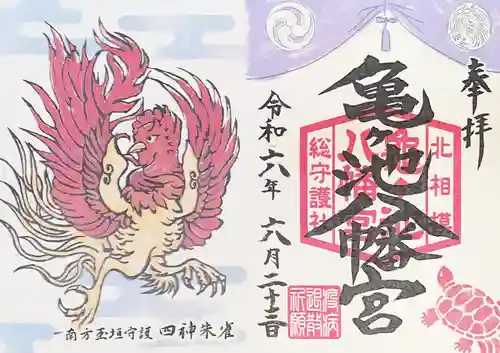 奉拝
北相模
亀ヶ池八幡宮
総守護社
亀ヶ池八幡宮
令和六年 六月二十三日
疫病退散祈願
一南方玉垣守護 四神朱雀